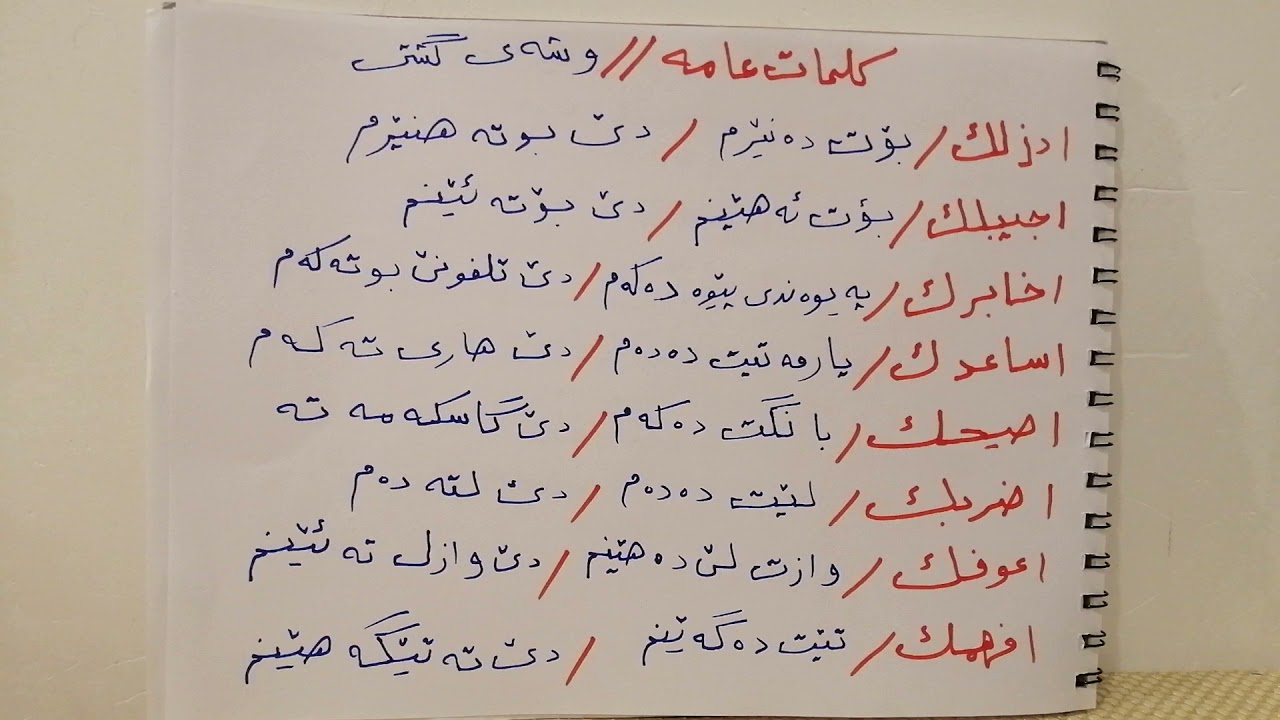 كلمات عامه // وشەی گشتی
ادزلك / بۆت دەنێرم / دێ بوتە هنێرم
اجيبلك / بۆت ئەهێنم / دێ بۆتە ئێنم
اخابرك / پەیوەندی پێوە دەکەم / دێ تلفونێ بوتەکەم
اساعدك / یارمەتیت دەدەم / دێ هاری تەکەم
اصيحلك / بانگت دەکەم / دێ گاسکەمە تە
اضربك / لێیت دەدەم / دێ لتە دەم
اعوفك / وازت لێ دەهێنم / دێ وازل تە ئێنم
افهمك / تێت دەگەێنم / دێ تە تێگە هێنم